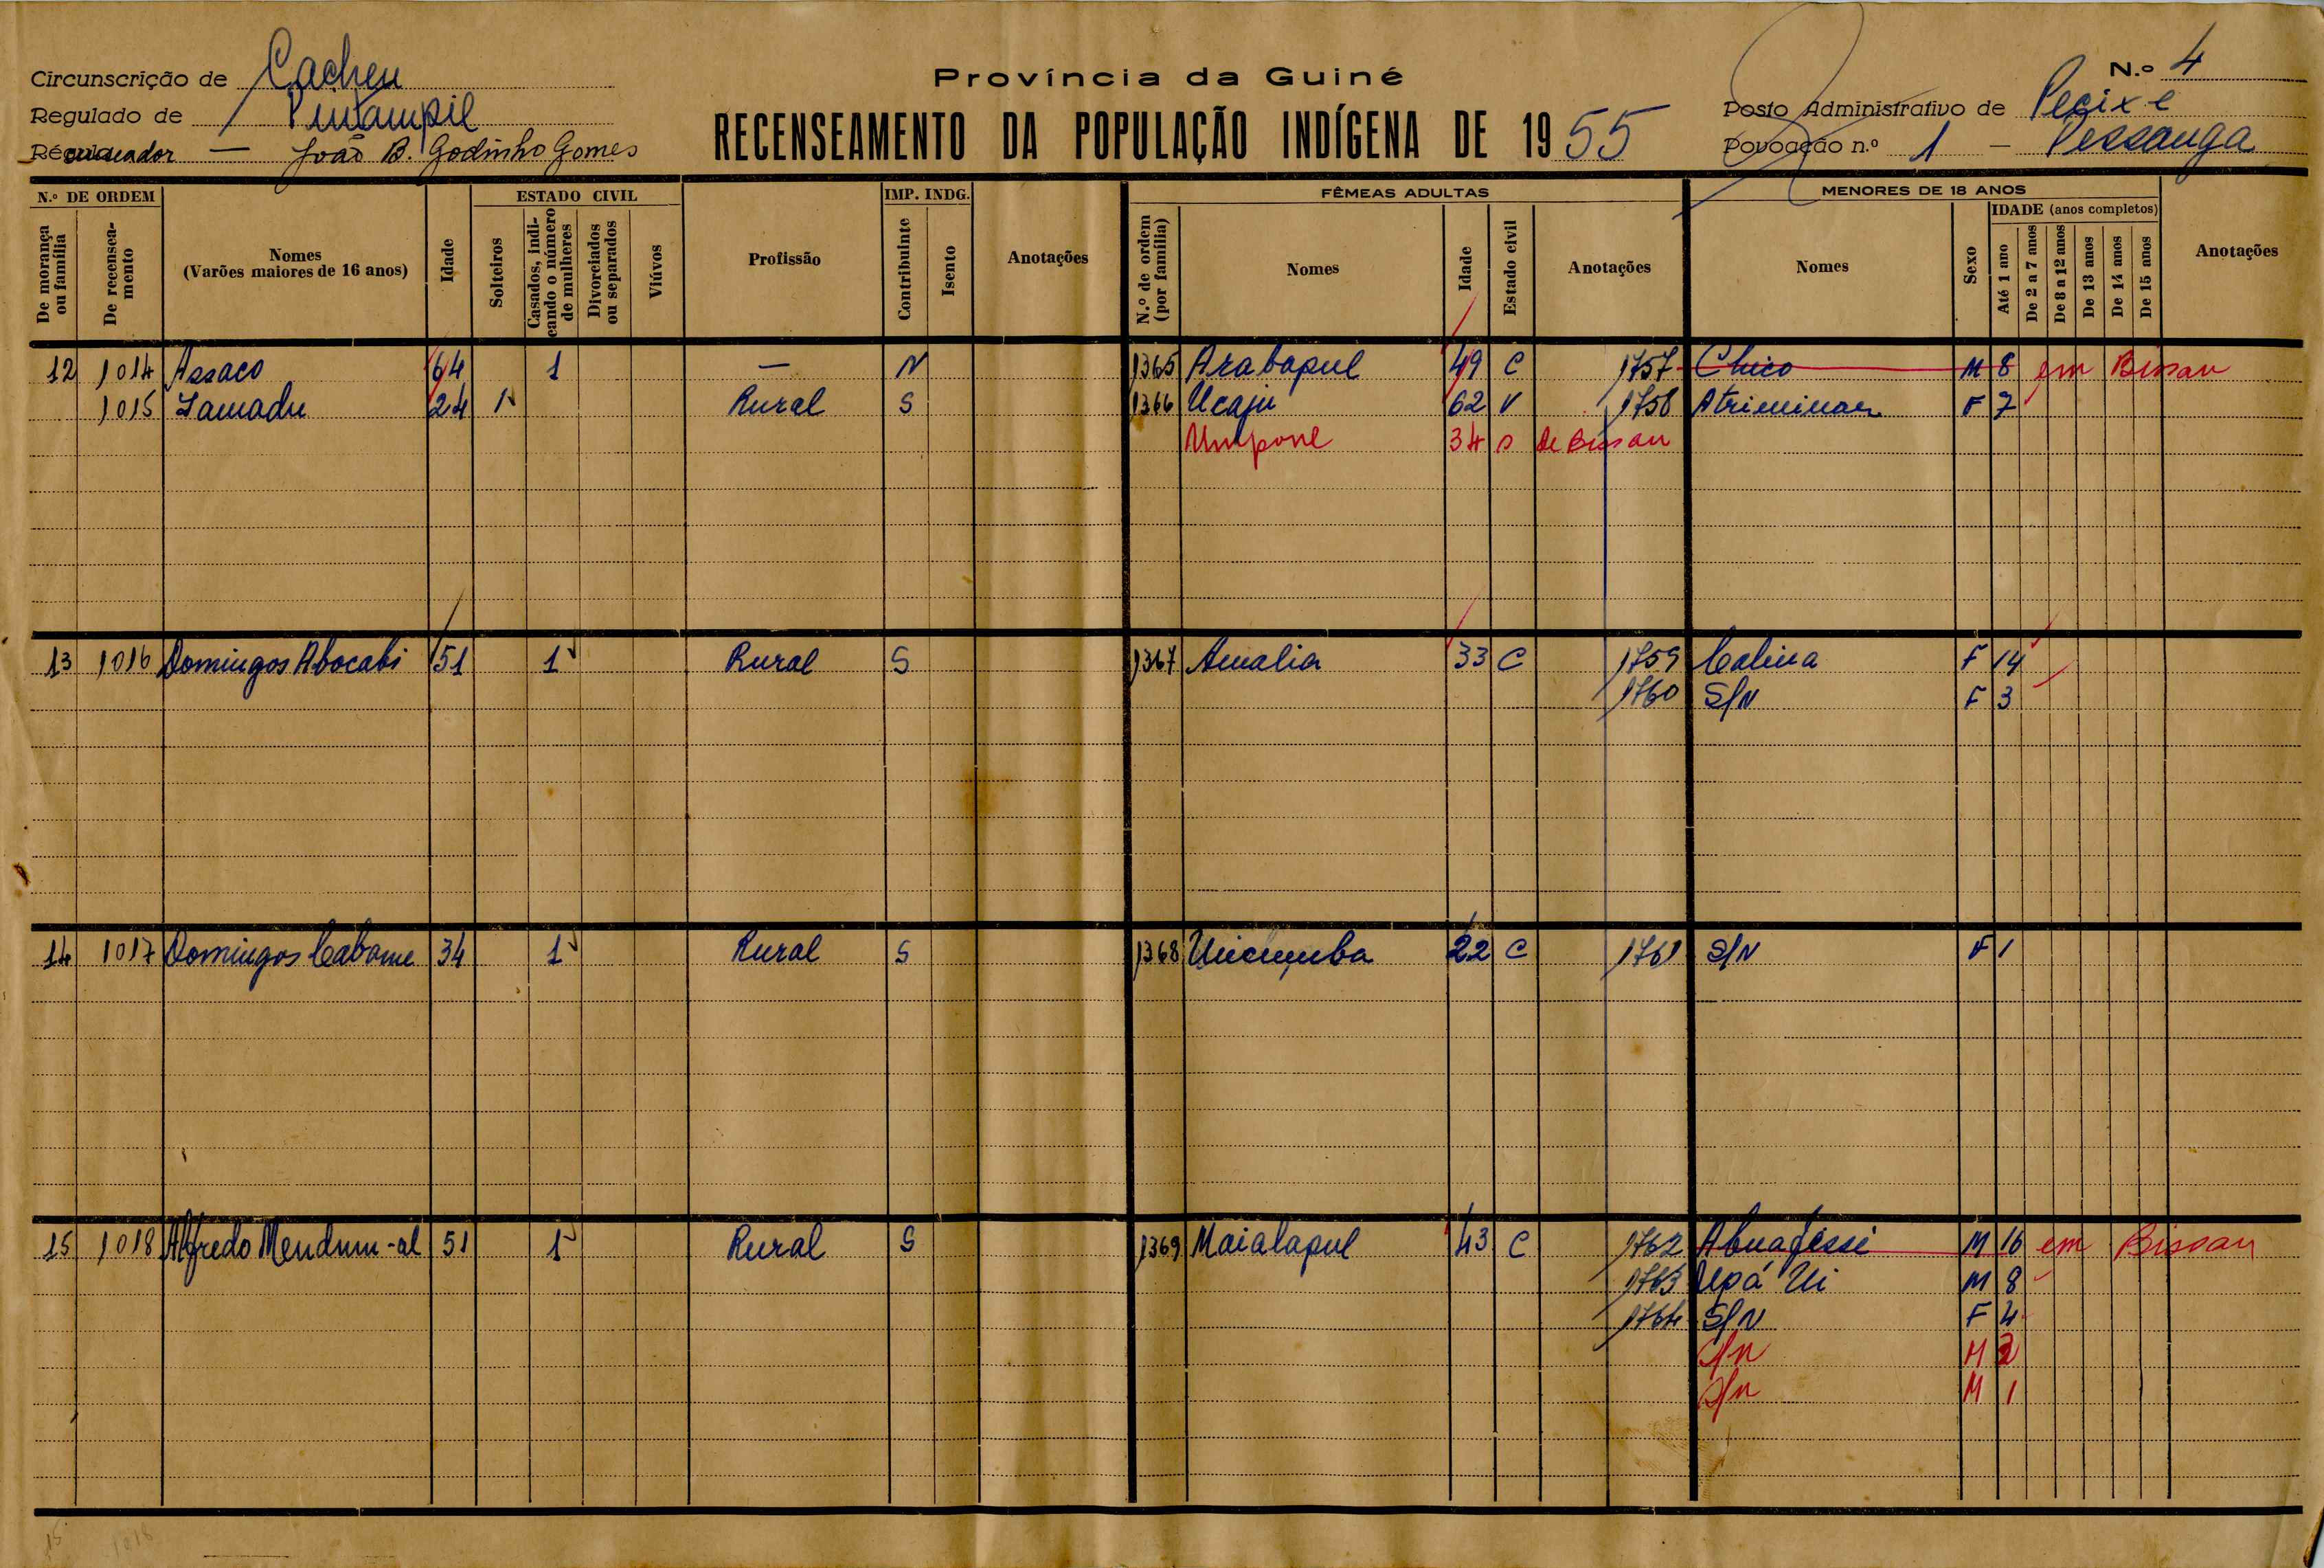 Circunscrição de Cacheu
Regulado de Pintampil
Recenseador — João B. Godinho Gomes
Província da Guiné
RECENSEAMENTO DA POPULAÇÃO INDÍGENA DE 1955
N.º 4
Posto Administrativo de Pecixe
Povoação n.º 1 — Pessanga
N.º DE ORDEM
De morança ou família
De recenseamento
Nomes
(Varões maiores de 16 anos)
Idade
ESTADO CIVIL
Solteiros
Casados, indicando o número de mulheres
Divorciados ou separados
Viúvos
Profissão
IMP. INDG.
Contribuinte
Isento
Anotações
FÊMEAS ADULTAS
N.º de ordem (por família)
Nomes
Idade
Estado civil
Anotações
MENORES DE 18 ANOS
Nomes
Sexo
IDADE (anos completos)
Até 1 ano
De 2 a 7 anos
De 8 a 12 anos
De 13 anos
De 14 anos
De 15 anos
Anotações
12 1014 Assaco 64 1 — N 1365 Arabapul 49 C 1757 Chico M 8 em Bissau
1015 24 1 Rural S 1366 Ucaju 62 V 1758 F 7
Umpone 34 s de Bissau
13 1016 Domingos Abocabi 51 1 Rural S 1367 Amalia 33 C 1759 Calina F 14
1760 S/N F 3
14 1017 Domingos Cabome 34 1 Rural S 1368 22 C 1761 S/N F 1
15 1018 Alfredo Mendum-al 51 1 Rural S 1369 Maialapul 43 C 1762 M 16 em Bissau
1763 Upá Ui M 8
1764 S/N F 4
S/n M 2
S/n M 1
15 1018